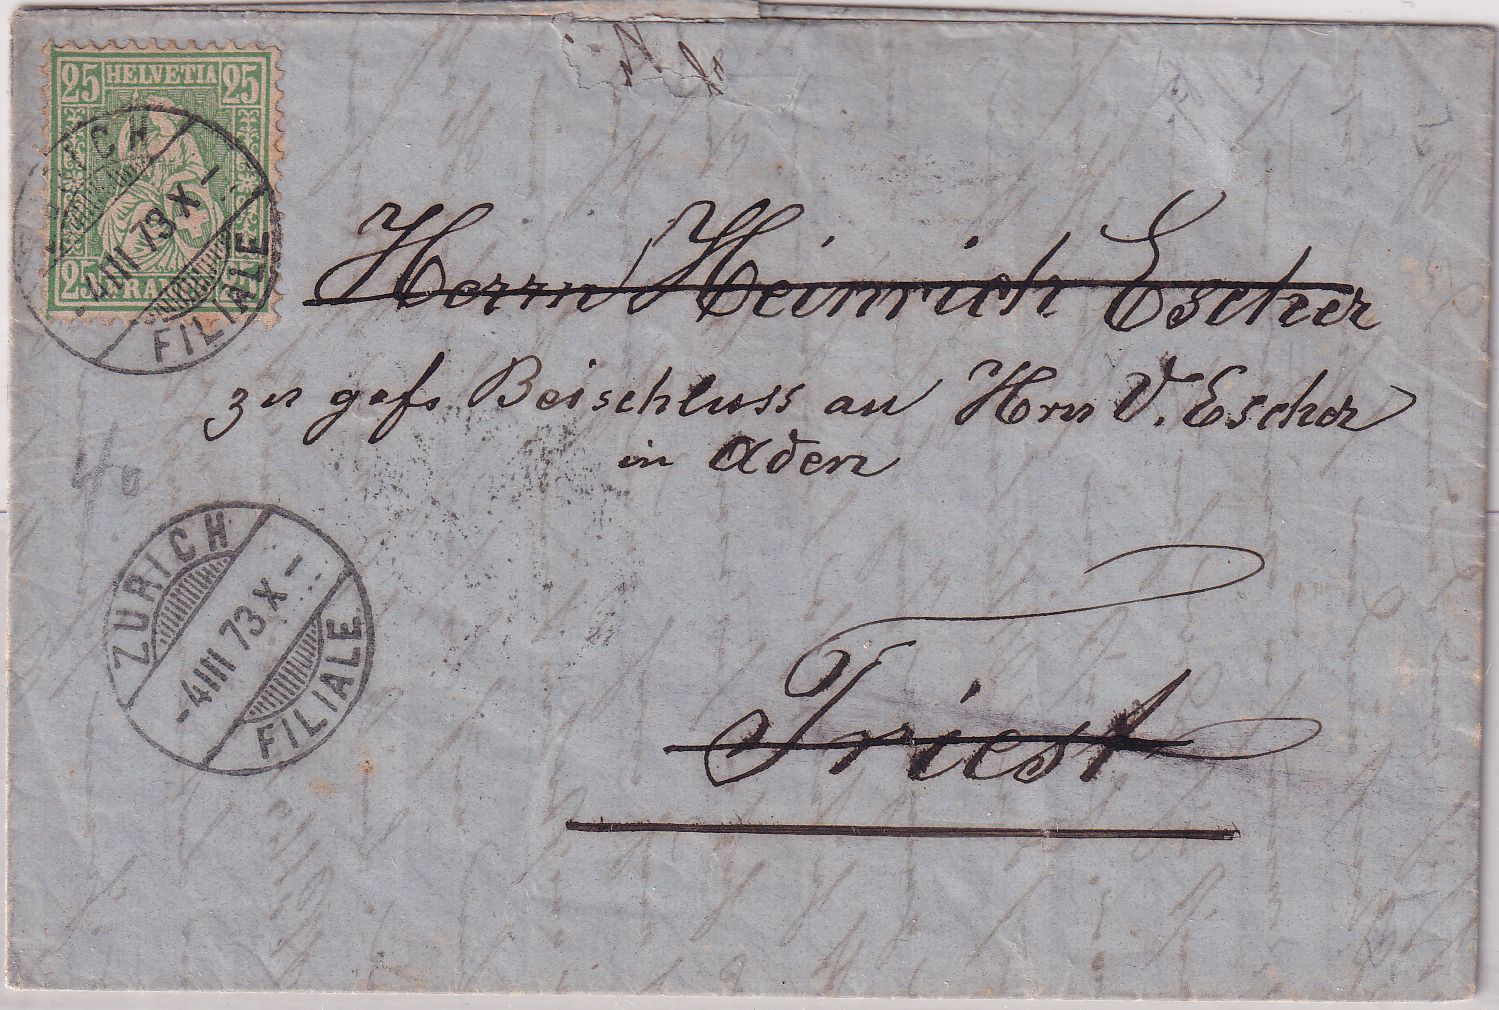 25 HELVETIA 25
25 FRANCO 25
ZURICH
-4III 73 X-
FILIALE
Herrn Heinrich Escher
zu gefs Beischluss an Hrn V. Escher
in Aden
40
ZURICH
-4III 73 X-
FILIALE
Triest